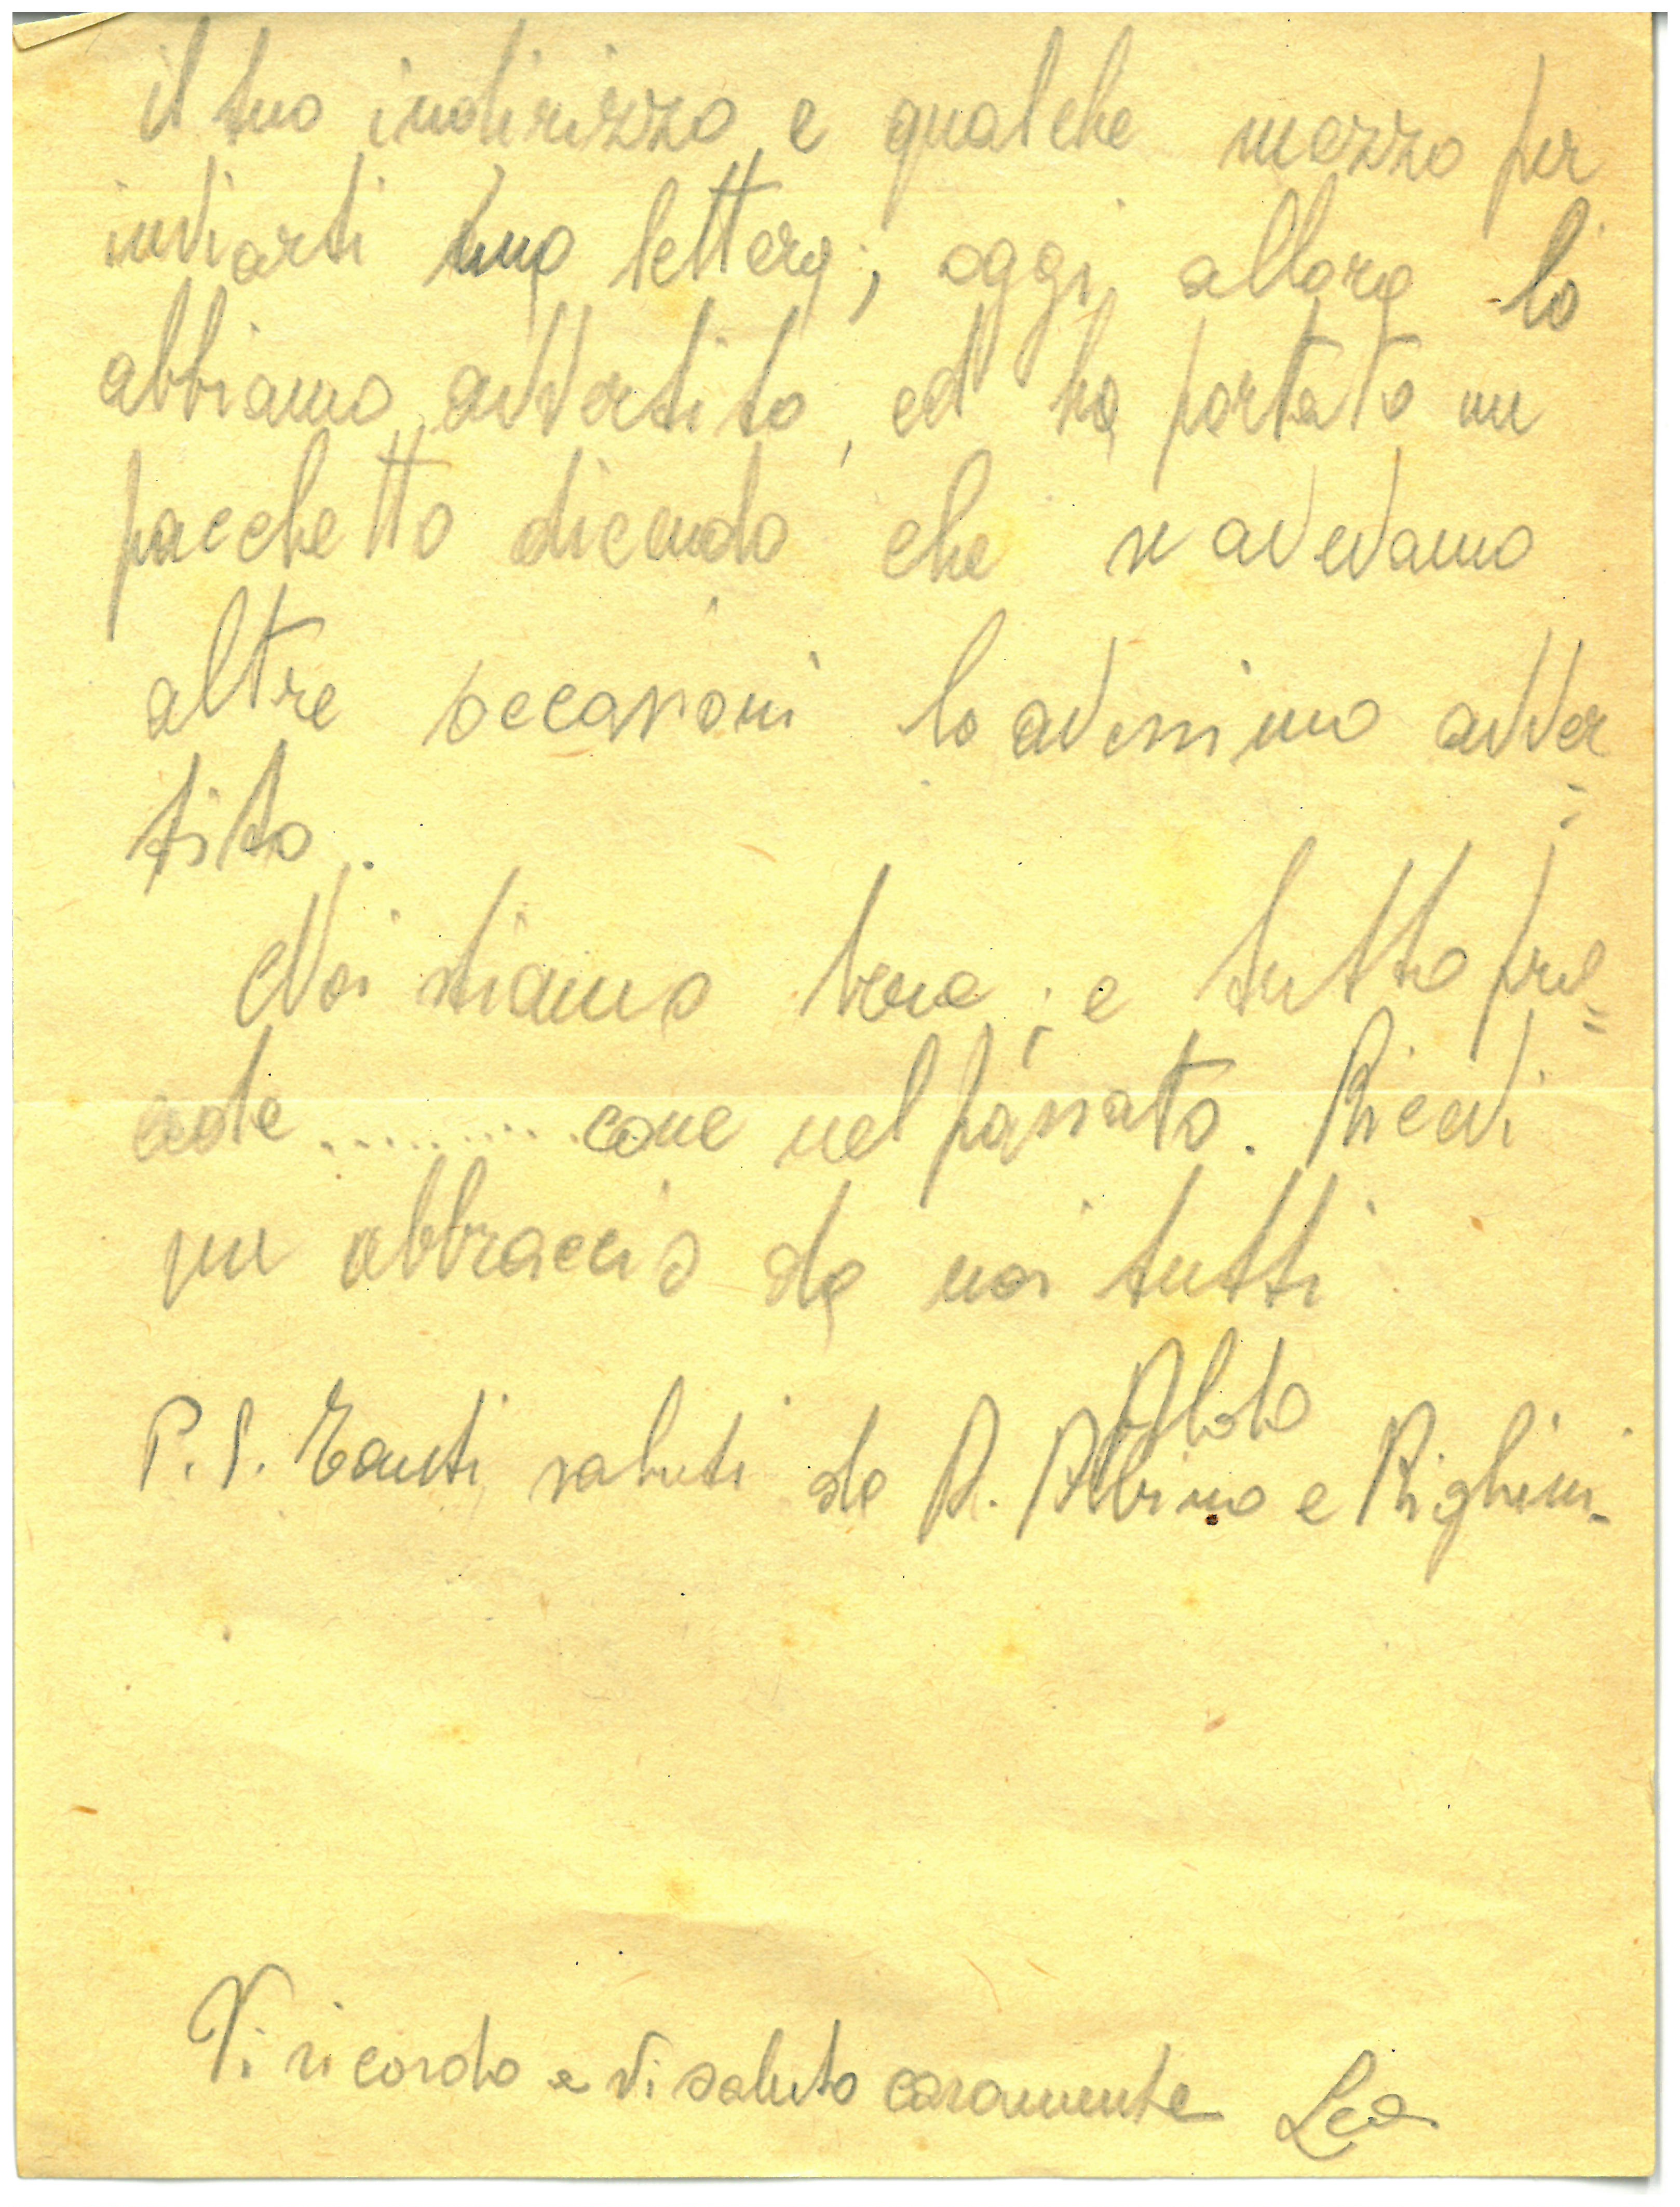 il tuo indirizzo e qualche mezzo per
inviarti una lettera; oggi allora lo
abbiamo avvertito, ed ha portato un
pacchetto dicendo che se avevamo
altre occasioni lo avessimo avver=
tito.
Noi stiamo bene; e tutto pro=
cede .......... come nel passato. Ricevi
un abbraccio da noi tutti
Aldo
P.S. Tanti saluti da A. Albino e Righini.
Vi ricordo e vi saluto caramente Lea